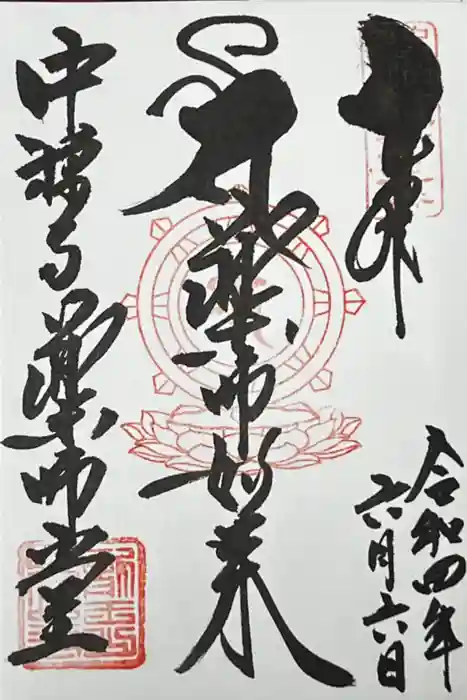 奉拝
令和四年
六月六日
薬師如来
中禅寺薬師堂